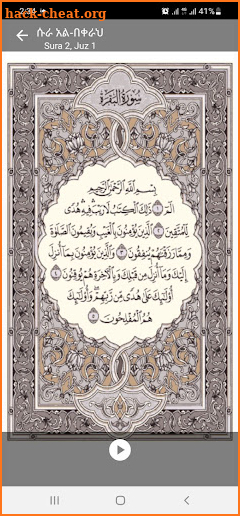 hack-cheat.org
2:34
41%
ሱራ አል-በቀራህ
Sura 2, Juz 1
سُورَةُ البَقَرَةِ
بِسْمِ اللَّهِ الرَّحْمَٰنِ الرَّحِيمِ
الٓمٓ ﴿١﴾ ذَٰلِكَ ٱلْكِتَٰبُ لَا رَيْبَ فِيهِ هُدًى
لِّلْمُتَّقِينَ ﴿٢﴾ ٱلَّذِينَ يُؤْمِنُونَ بِٱلْغَيْبِ وَيُقِيمُونَ ٱلصَّلَوٰةَ
وَمِمَّا رَزَقْنَٰهُمْ يُنفِقُونَ ﴿٣﴾ وَٱلَّذِينَ يُؤْمِنُونَ بِمَآ أُنزِلَ
إِلَيْكَ وَمَآ أُنزِلَ مِن قَبْلِكَ وَبِٱلْأَخِرَةِ هُمْ يُوقِنُونَ ﴿٤﴾
أُو۟لَٰٓئِكَ عَلَىٰ هُدًى مِّن رَّبِّهِمْ وَأُو۟لَٰٓئِكَ
هُمُ ٱلْمُفْلِحُونَ ﴿٥﴾